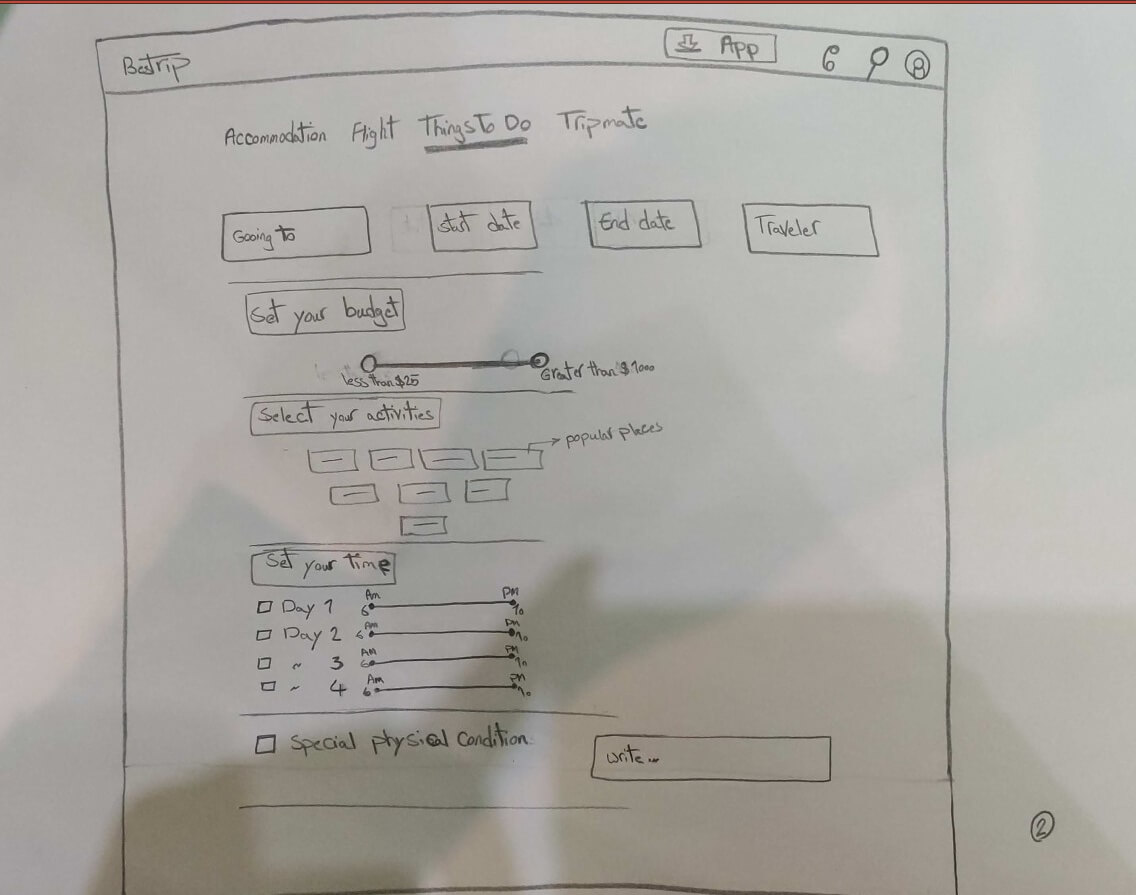 BesTrip
App
Accommodation Flight Things To Do Tripmate
Gooing To
Start date
End date
Traveler
Set your budget
less than $25
Greater than $1000
Select your activities
popular places
Set your Time
Day 1 6 Am Pm 10
Day 2 6 Am Pm 10
" 3 6 AM PM 10
" 4 6 Am Pm 10
Special physical Condition
write...
2